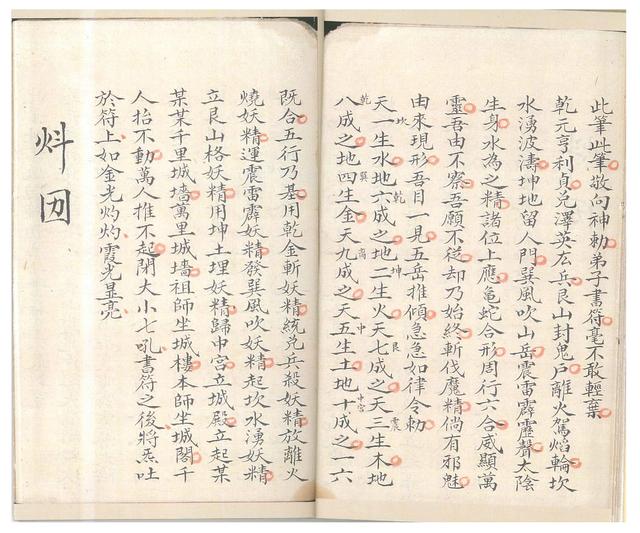 此筆此筆敬向神勅弟子書符毫不敢輕棄
乾元亨利貞兌澤英左兵艮山封鬼户離火駕焰輪坎
水湧波濤坤地留人門巽風吹山岳震雷霹靂聲太陰
生身水為之精諸位上應龜蛇合形周行六合威顯萬
靈吾由不察吾願不從却乃始終斬伐魔精倘有邪魅
由來現形吾目一見五岳推傾急急如律令勅
天一生水地六成之地二生火天七成之天三生木地
坎 乾 坤 艮 震
八成之地四生金天九成之天五生土地十成之一六
乾 巽 离 中 中宮
既合五行乃基用乾金斬妖精統兌兵殺妖精放離火
燒妖精運震雷霹妖精發巽風吹妖精起坎水湧妖精
立艮山格妖精用坤土埋妖精歸中宮立城殿立起某
某某千里城墻萬里城墻祖師坐城樓本師坐城閣千
人抬不動萬人推不起閉大小七吼書符之後將炁吐
於符上如金光灼灼霞光显亮